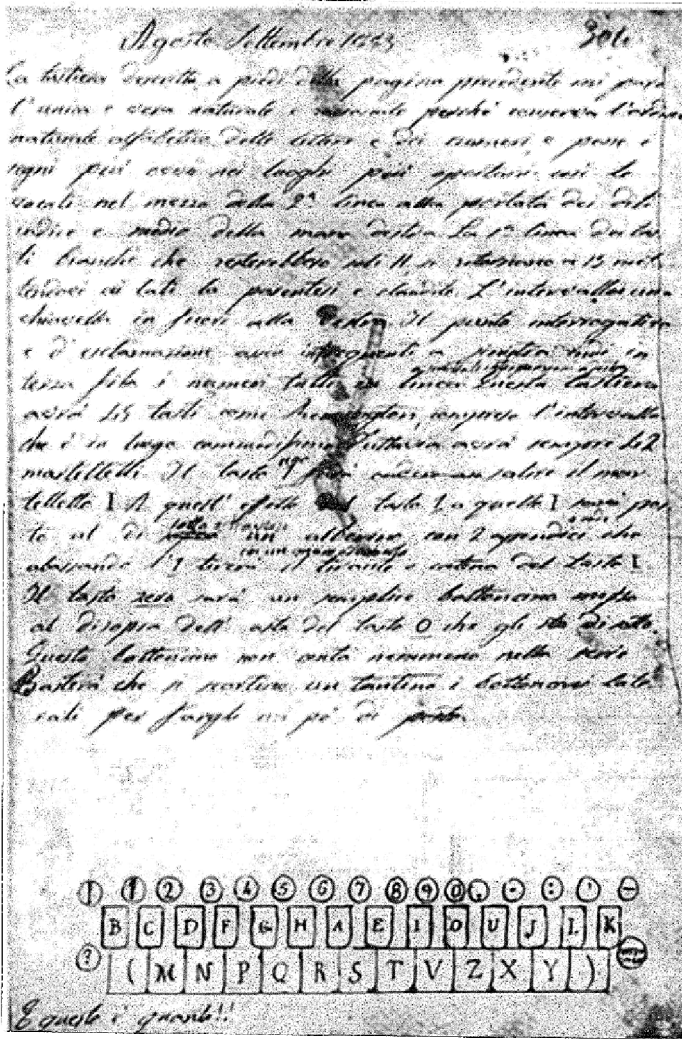 Agosto Settembre 1883
La tastiera descritta a piedi della pagina precedente mi pare
l'unica e vera naturale e perché conserva l'ordine
naturale alfabetico delle lettere e dei numeri e pone i
segni più nei luoghi più opportuni così le
vocali nel mezzo della 2ª linea alla portata dei diti
indice e medio della mano destra La 1ª linea dei tas
ti bianchi che resterebbero soli 11 si a 13 met
tendoci ai lati la parentesi e L'intervallo una
chiavetta in fuori alla destra Il punto interrogativo
e d'esclamazione a sinistra in
terza fila i numeri tutti in linea Questa tastiera
avrà 45 tasti come Remington, compreso l'intervallo
che è in luogo comodissimo Tuttavia avrà sempre 42
martelletti Il tasto salire il mar
telletto I A quest' effetto dal tasto 1 a quello I sarà pos
to al di sotto un alberino con 2 apendici che
abassando l'1 tirerà il tirante o catena del tasto I
Il tasto zero sarà un semplice bottoncino messo
al disopra dell' asta del tasto O che gli sta di sotto.
Questo bottoncino non conta nemmeno nella serie
Basterà che si scostino un tantino i bottoncini late
rali per fargli un pò di posto.
! 1 2 3 4 5 6 7 8 9 0 , - : ' –
B C D F G H A E I O U J L K
? ( M N P Q R S T V Z X Y )
E questo è quanto!!